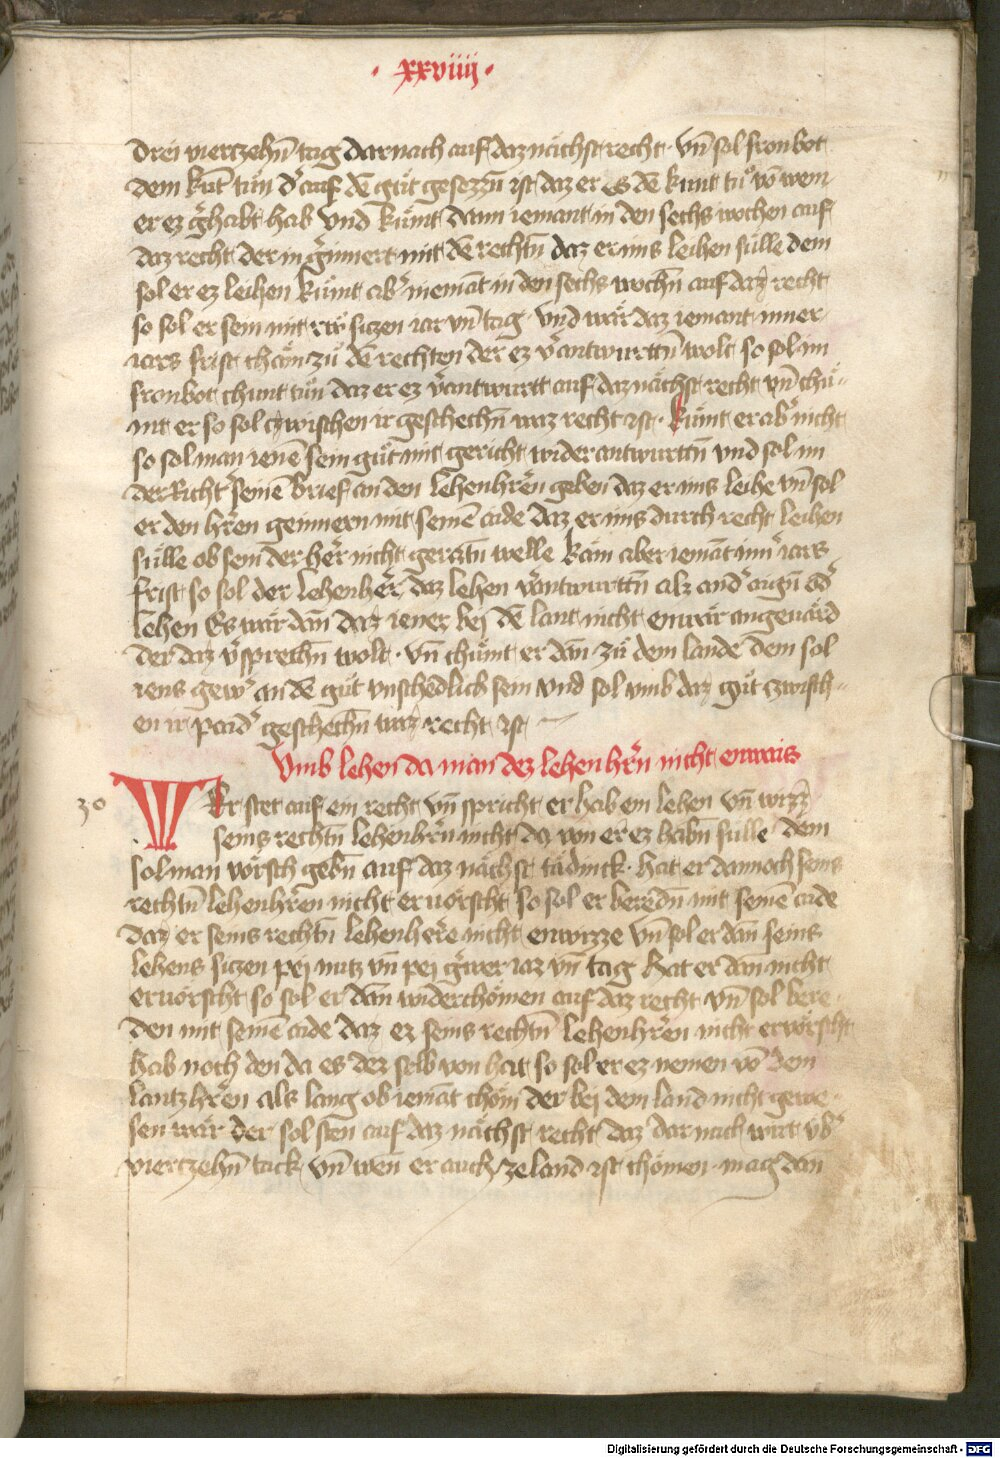 · xxviiij ·
drei viertzehn̄ tag darnach auf daz nächst recht · vn̄ sol fronbot
dem kūt tůn d' auf dē gůt gesezzn̄ ist daz er es dē kunt tů vō wem
er ez g'habt hab vnd kümt dann iemant in den sechs wochen auf
daz recht der in g'innert mit dē rechtn̄ daz er ims leihen sülle dem
sol er ez leihen kümt ab' niemāt in den sechs wochn̄ auf daz recht
so sol er sein mit rw sitzen iar vn̄ tag · vnd wär daz iemant inner
iars frist chäm zů dē rechten der ez v'antwurttn̄ wolt so sol im
fronbot chunt tůn daz er ez v'antwurtt auf daz nächst recht vn̄ chü-
mt er so sol zwischen ir geschechn̄ waz recht ist · kümt er ab' nicht
so sol man ienē sein gůt mit gericht widerantwurttn̄ vnd sol im
der Richt' seinē brief an den lehenh'ren geben daz er ims leihe vn̄ sol
er den h'ren geinnern mit seinē aide daz er ims durch recht leihen
sülle ob sein der her' nicht geratn̄ welle käm aber iemāt inn' iars
frist so sol der lehenher' daz lehen v'antwurttn̄ alz and' aign̄ od'
lehen Es wär dān daz iener bei dē lant nicht enwär angeuärd
der daz v'sprechn̄ wolt · vn̄ chümt er dān zů dem lande dem sol
iens gew' an dē gůt vnschedlich sein vnd sol vmb daz gůt zwisch-
en ir paid' geschechn̄ waz recht ist
Vmb lehen da man dez lehenh'rn nicht enwais
30
WEr stet auf ein recht vn̄ spricht er hab ein lehen vn̄ wizz
seins rechtn̄ lehenh'rn nicht da von er ez habn̄ sülle dem
sol man vörsch gebn̄ auf daz nächst tädinck · hat er dannoch seins
rechtn̄ lehenh'ren nicht eruörscht so sol er beredn̄ mit seinē aide
daz er seins rechtn̄ lehenher'e nicht enwizze vn̄ sol er dān seins
lehens sitzen pei nutz vn̄ pei g'wer iar vn̄ tag Hat er dān nicht
eruörscht so sol er dān widerchömen auf daz recht vn̄ sol bere-
den mit seinē aide daz er seins rechtn̄ lehenh'ren nicht ervörscht
hab noch den da es dez selb von hat so sol er ez nemen vō dem
lantzh'ren als lang ob iemāt chöm der bei dem land nicht gewe-
sen wär der sol sten auf daz nächst recht daz dar nach wirt vb'
viertzehn̄ tack vn̄ wen er auch ze land ist chömen · mag dān
Digitalisierung gefördert durch die Deutsche Forschungsgemeinschaft - DFG